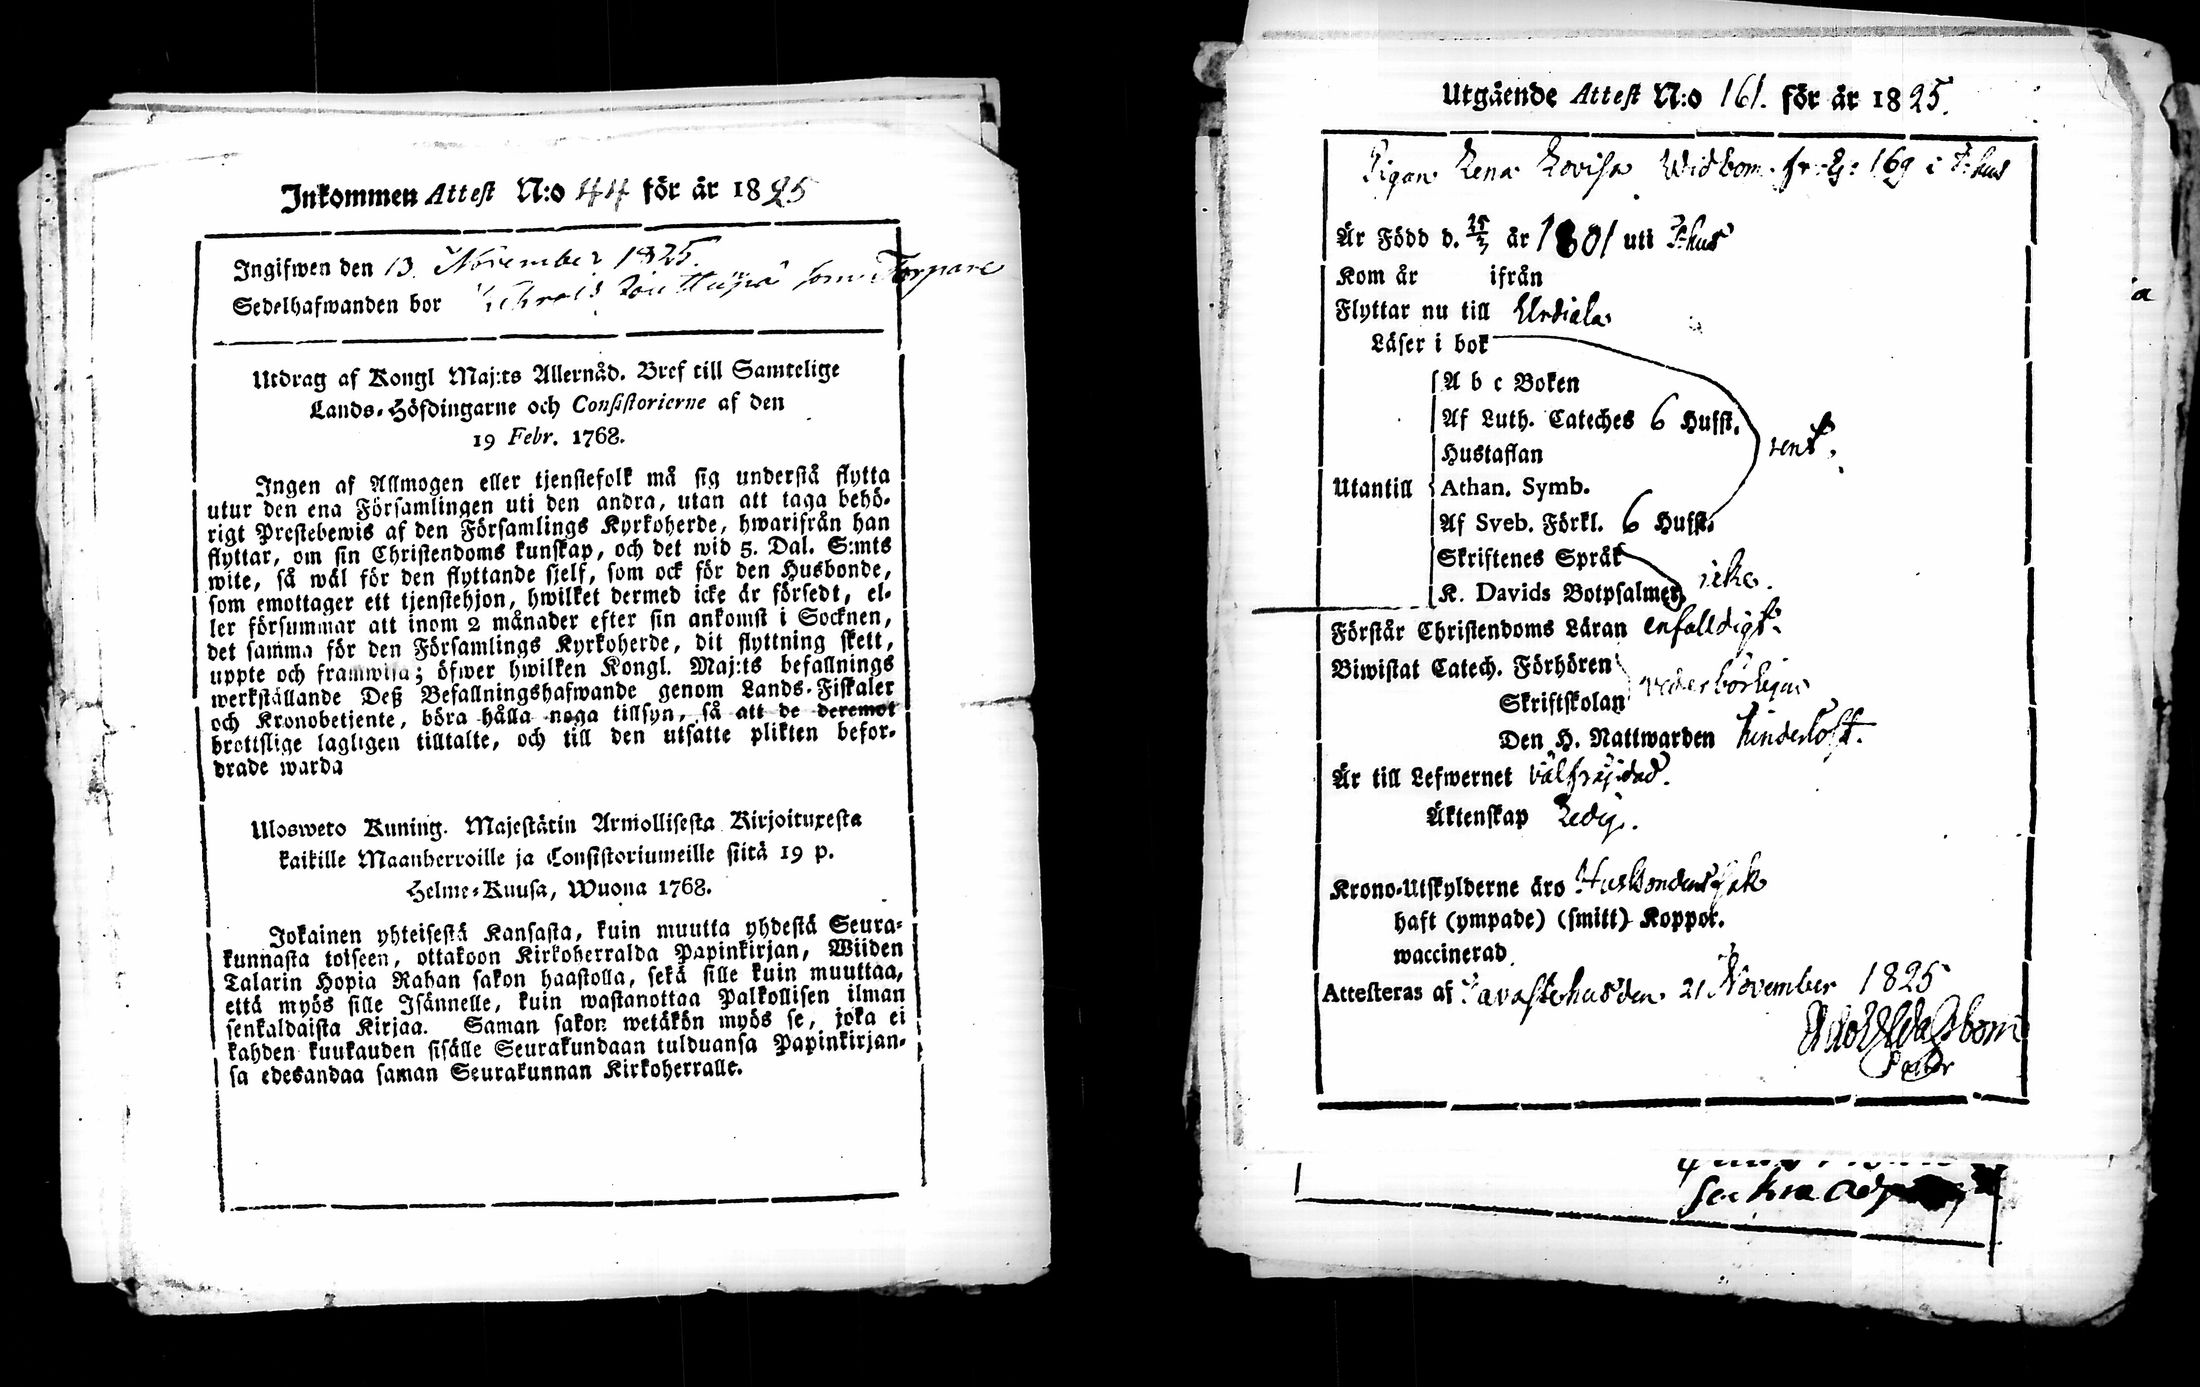 Inkommen Attest N:o 44 för år 1825
Ingifwen den 13. November 1825.
Sedelhafwanden bor som Torpare
Utdrag af Kongl Maj:ts Allernåd. Bref till Samtelige
Lands-Höfdingarne och Consistorierne af den
19 Febr. 1768.
Ingen af Allmogen eller tjenstefolk må sig understå flytta
utur den ena Församlingen uti den andra, utan att taga behö-
rigt Prestebewis af den Församlings Kyrkoherde, hwarifrån han
flyttar, om sin Christendoms kunskap, och det wid 5. Dal. S:mts
wite, så wäl för den flyttande sjelf, som ock för den Husbonde,
som emottager ett tjenstehjon, hwilket dermed icke är försedt, el-
ler försummar att inom 2 månader efter sin ankomst i Socknen,
det samma för den Församlings Kyrkoherde, dit flyttning skett,
uppte och framwisa; öfwer hwilken Kongl. Maj:ts befallnings
werkställande Deß Befallningshafwande genom Lands-Fiskaler
och Kronobetjente, böra hålla noga tillsyn, så att de deremot
brottslige lagligen tilltalte, och till den utsatte plikten befor-
drade warda
Ulosweto Kuning. Majestätin Armollisesta Kirjoituxesta
kaikille Maanherroille ja Consistoriumeille siitä 19 p.
Helme-Kuusa, Wuona 1768.
Jokainen yhteisestä Kansasta, kuin muutta yhdestä Seura-
kunnasta toiseen, ottakoon Kirkoherralda Papinkirjan, Wiiden
Talarin Hopia Rahan sakon haastolla, sekä sille kuin muuttaa,
että myös sille Isännelle, kuin wastanottaa Palkollisen ilman
senkaldaista Kirjaa. Saman sakon wetäkön myös se, joka ei
kahden kuukauden sisälle Seurakundaan tulduansa Papinkirjan-
sa edesandaa saman Seurakunnan Kirkoherralle.
Utgående Attest N:o 161. för år 1825.
Pigan Lena Lovisa Widbom fr. Eg: 169 i T:hus
Är Född d. 25/3 år 1801 uti T:hus
Kom år ifrån
Flyttar nu till Urdiala
Läser i bok
A b c Boken
Af Luth. Cateches 6 Hufst. rent.
Hustaflan
Utantill Athan. Symb.
Af Sveb. Förkl. 6 Hufst.
Skriftenes Språk
K. Davids Botpsalmer icke.
Förstår Christendoms Läran enfalldigt.
Biwistat Catech. Förhören
Skriftskolan vederbörligen
Den H. Nattwarden hinderlöst.
Är till Lefwernet välfrejdad.
Äktenskap Ledig.
Krono-Utskylderne äro Husbondens sak
haft (ympade) (smitt) Koppor.
waccinerad
Attesteras af Tavastehus den 21 November 1825